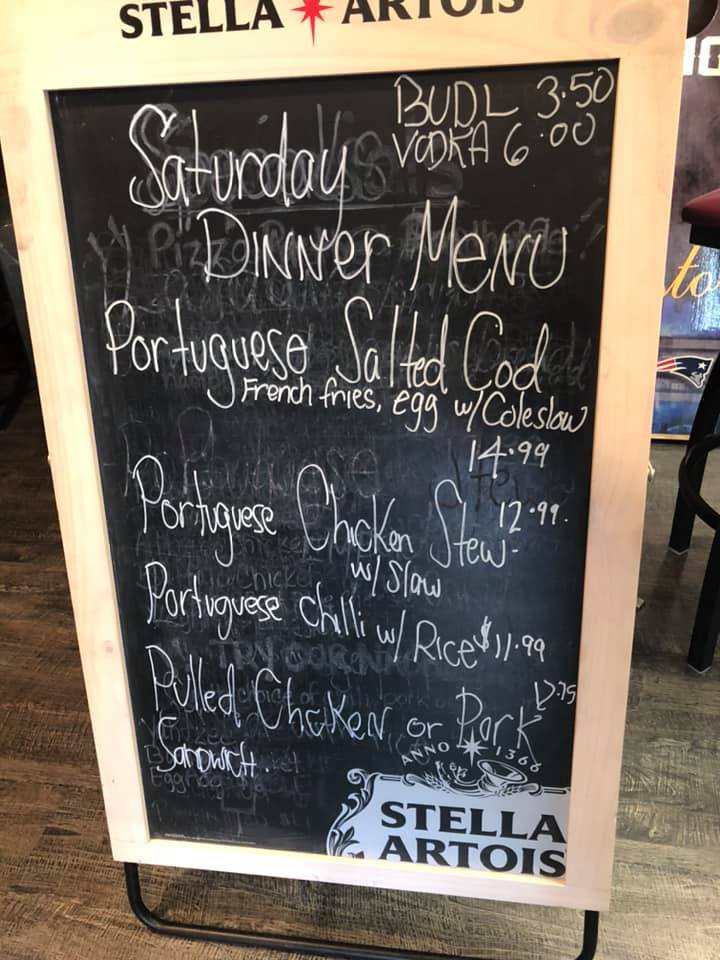 STELLA ARTOIS
BUDL 3.50
VODKA 6.00
Saturday
DINNer MeNU
Portuguese Salted Cod
French fries, egg w/Coleslow
14.99
Portuguese Chicken Stew 12.99.
w/ Slaw
Portuguese chilli w/ Rice $11.99
Pulled Chicken or Pork
Sandwich.
ANNO 1366
STELLA
ARTOIS